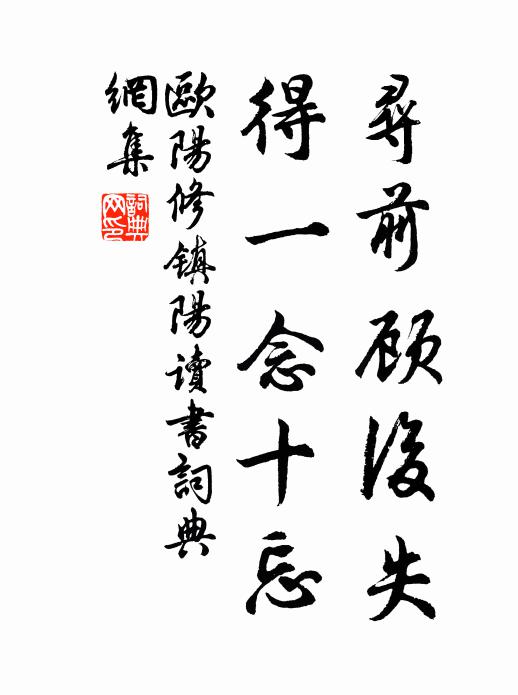 尋前顧後失
得一念十忘
歐陽修鎮陽讀書詞典
網集
詞典
网印